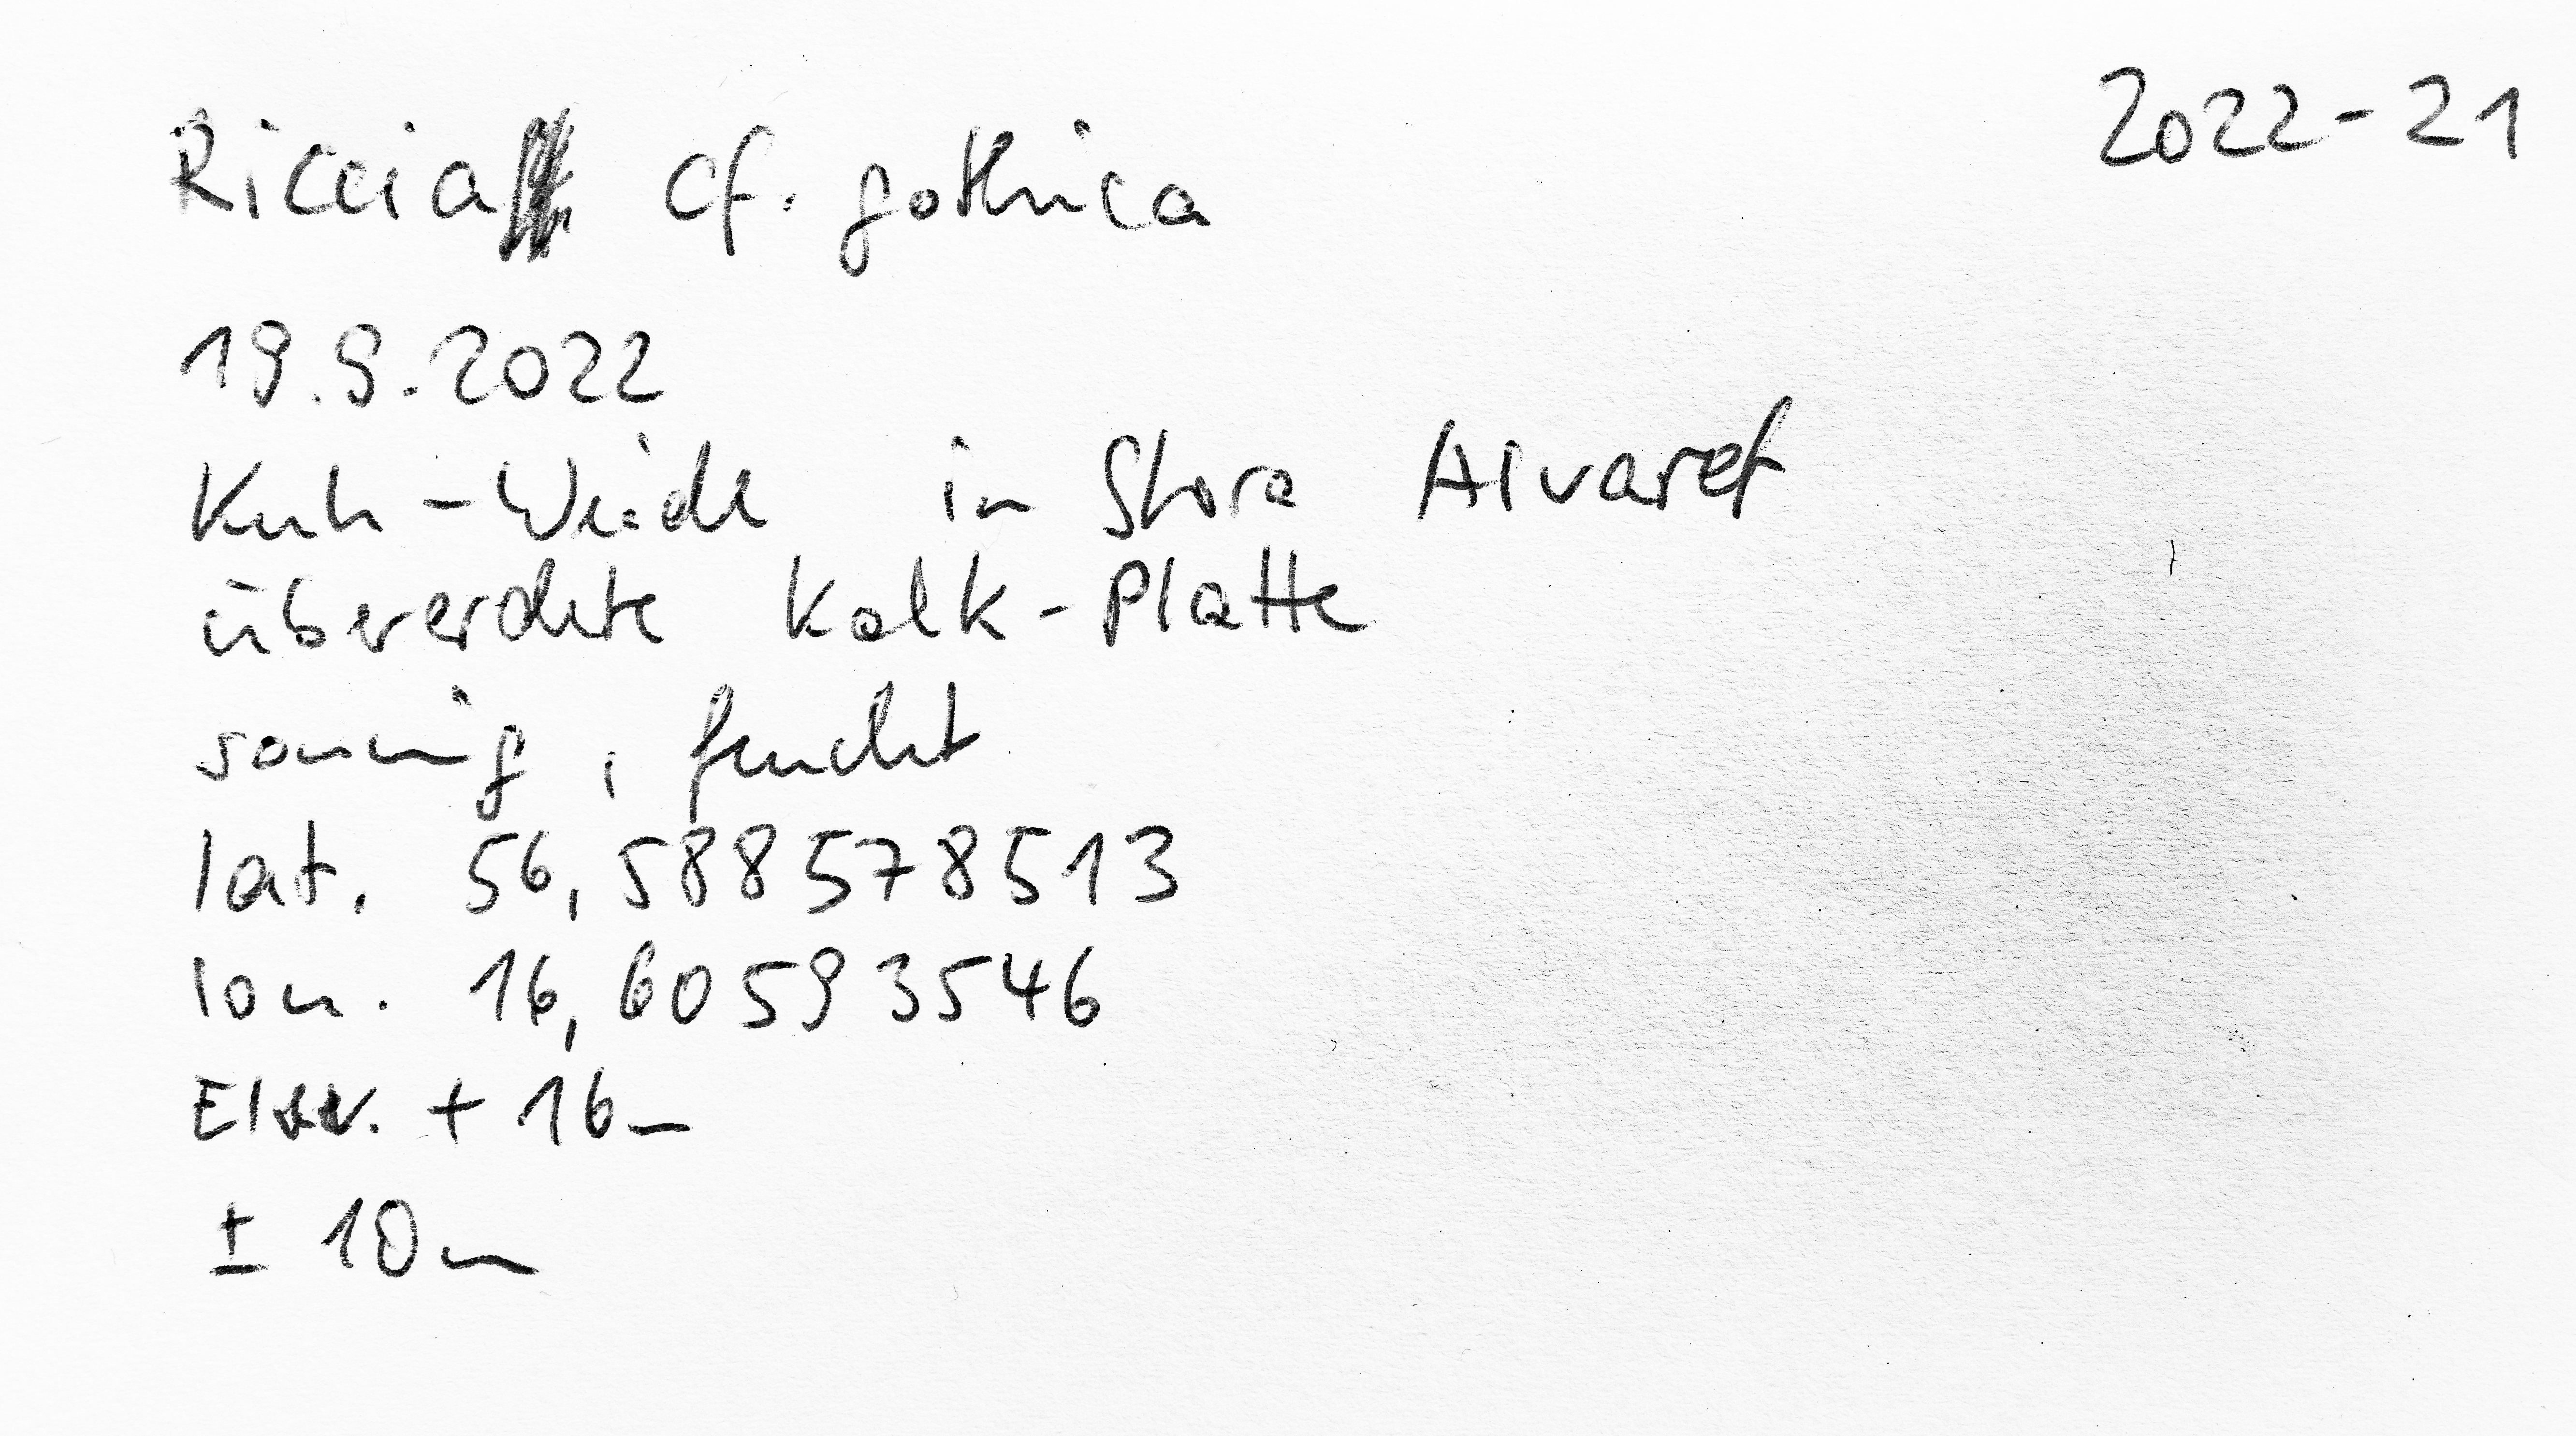 2022-21
Riccia cf. gothica
19.9.2022
Kuh-Weide in Stora Alvaret
übererdete Kalk-Platte
sonnig, feucht
lat. 56,588578513
lon. 16,60593546
Elev. +16m
± 10m